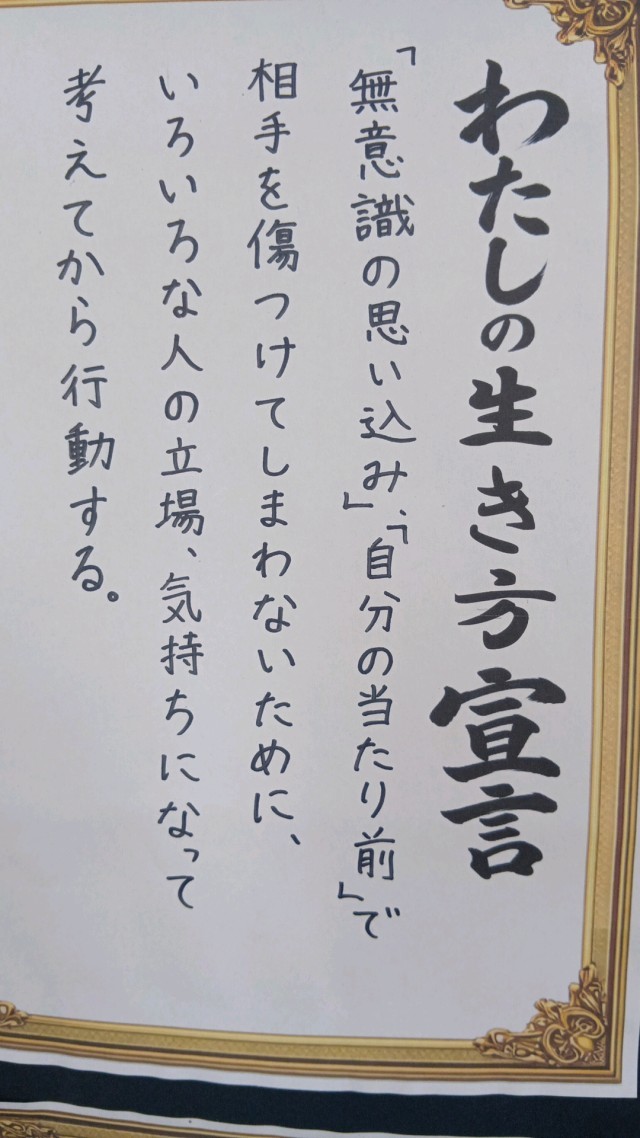 わたしの生き方宣言
「無意識の思い込み」、「自分の当たり前」で
相手を傷つけてしまわないために、
いろいろな人の立場、気持ちになって
考えてから行動する。